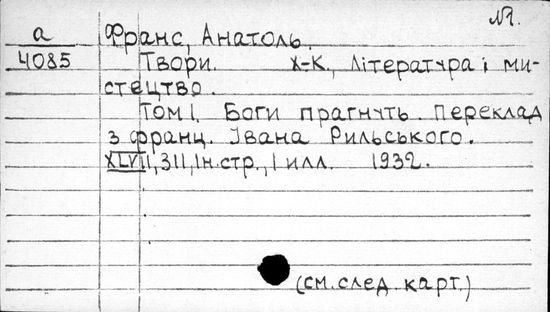 №1.
а Франс, Анатоль.
4085 Твори. Х-К., Література і ми-
стецтво.
Том І. Боги прагнуть. Переклад
з франц. Івана Рильського.
XLVII, 311, Ін. стр., 1 илл. 1932.
(см. след. карт.)